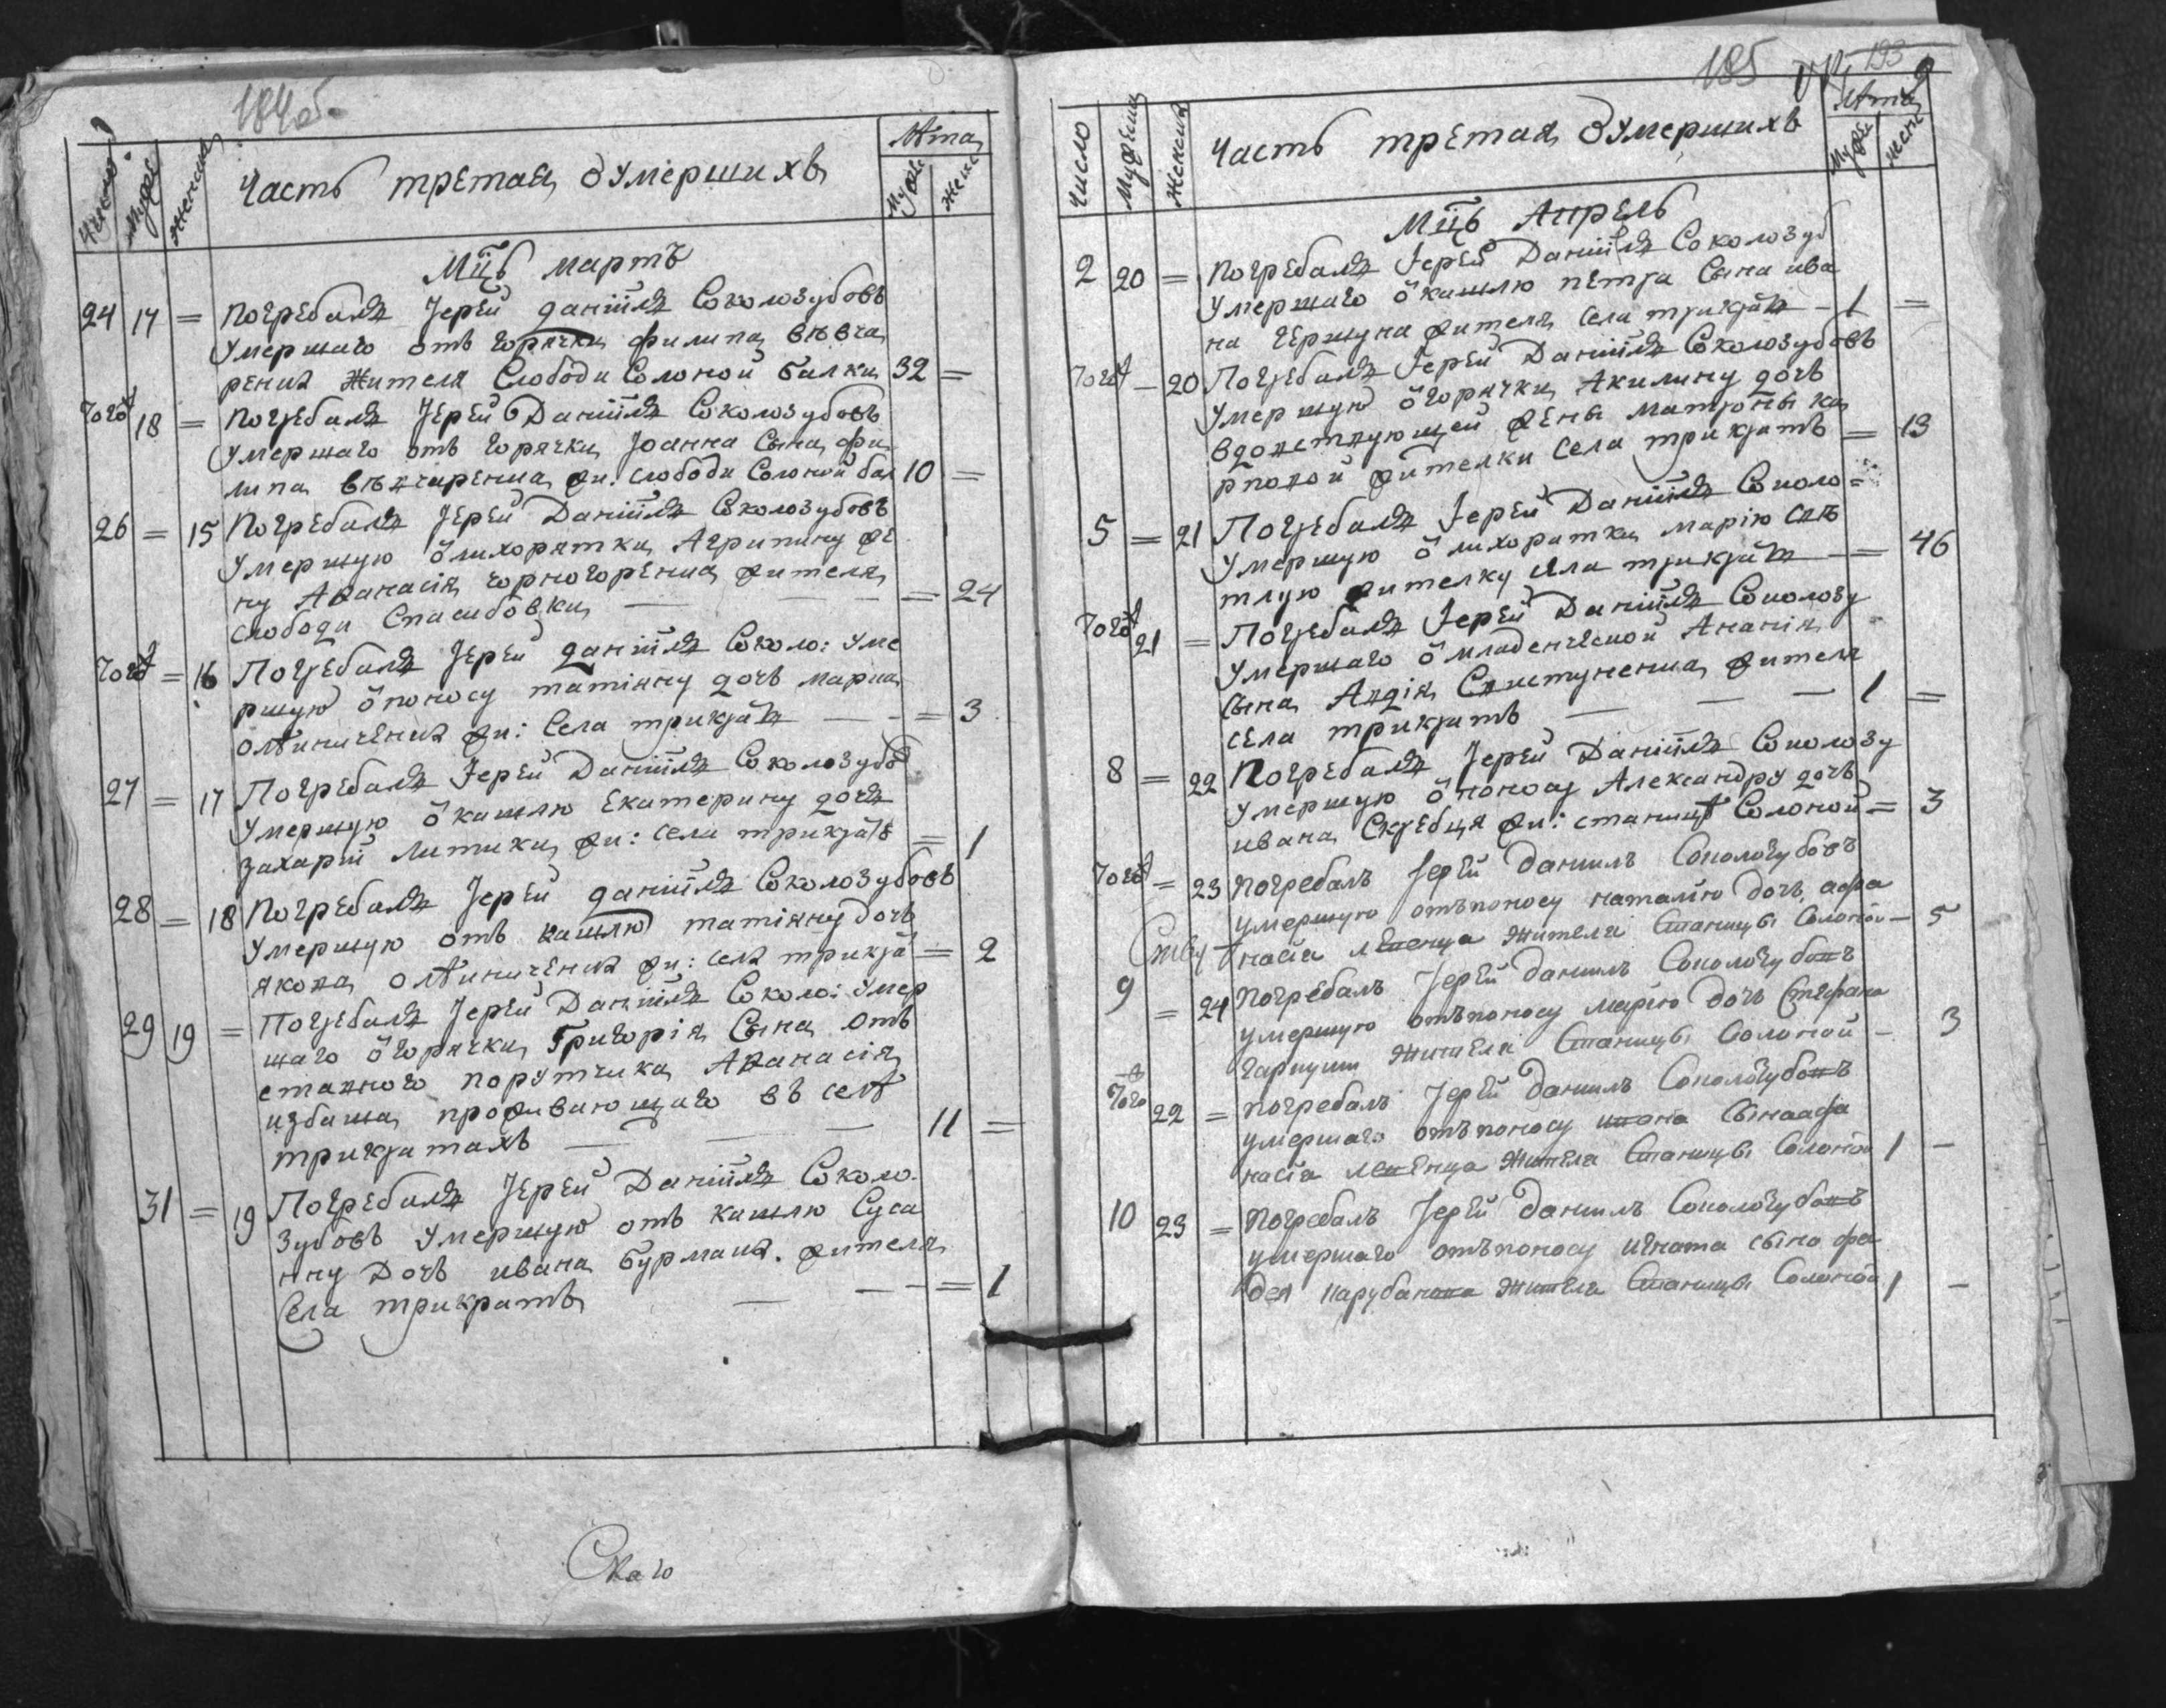 184об.
Число
Мужес
Женски
Часть третая О Умершихъ
Лѣта
Мужес
Женс
Мцъ мартъ
24 17 = Погребалъ Іерей Даніилъ Соколозубовъ
Умершаго отъ горячки филипа
рения Жителя Слободи Солоной балки 32 =
Тогож 18 = Погребалъ Іерей Даніилъ Соколозубовъ
Умершаго отъ горячки Іоанна Сына фи
липа жи: слободи Солоной бал 10 =
26 = 15 Погребалъ Іерей Даніилъ Соколозубовъ
Умершую ѿ лихорятки Агрипину же
ну Аѳанасія чорногоренка жителя
слободи Спасибовки — — = 24
Тогож = 16 Погребалъ Іерей Даніилъ Соколо: Уме
ршую ѿ поносу татіяну дочь марка
олѣиниченка жи: Села трикрат — = 3
27 = 17 Погребалъ Іерей Даніилъ Соколозубов
Умершую ѿ кашлю Екатерину дочь
захарій литики жи: села трикратъ = 1
28 = 18 Погребалъ Іерей Даніилъ Соколозубовъ
Умершую отъ кашлю татіяну дочь
якова олѣиниченка жи: села трикра = 2
29 19 = Погребалъ Іерей Даніилъ Соколо: Умер
шаго ѿ горячки Григорія Сына отъ
ставного порутчика Аѳанасія
избаша проживающаго въ селѣ
трикратахъ — — — 11 =
31 = 19 Погребалъ Іерей Даніилъ Соколо.
Зубовъ Умершую отъ кашлю Суса
нну Дочь ивана бурмаки. жителя
Села трикратъ — — = 1
185
193
Число
Мужеска
Женска
Часть третая О Умершихъ
Лѣта
Мужес
женс
Мцъ Апрель
2 20 = Погребалъ Іерей Даніилъ Соколозуб
Умершаго ѿ кашлю петра Сына ива
на Гершуна жителя Села трикрат — 1 =
Тогож — 20 Погребалъ Іерей Даніилъ Соколозубовъ
Умершую ѿ горячки Акилину дочь
вдовствующей жены матроны ка
рповой жителки села трикратъ = 13
5 = 21 Погребалъ Іерей Даніилъ Соколо=
Умершую ѿ лихоратки марію слѣ
пую жителку села трикрат — = 46
Тогож 21 = Погребалъ Іерей Даніилъ Соколозу
Умершаго ѿ младенческой Ананія
Сына Авдія Свистуненка жителя
села трикратъ — — — 1 =
8 = 22 Погребалъ Іерей Даніилъ Соколозу
Умершую ѿ поносу Александру дочь
ивана Скребця жи: станицѣ Солоной = 3
Тогож = 23 погребалъ Іерей Данилъ Соколозубовъ
умершую отъ поносу наталію дочь афа
насія левенца жителя Станицы Солоной — 5
9 = 24 погребалъ Іерей Данилъ Соколозубовъ
умершую отъ поносу марію дочь Стефана
Гаркуши жителя Станицы Солоной — 3
Тогож 22 = погребалъ Іерей Данилъ Соколозубовъ
умершаго отъ поносу ивана Сына афа
насія левенца жителя Станицы Солоной 1 —
10 23 = погребалъ Іерей Данилъ Соколозубовъ
умершаго отъ поносу игната сына фа
дея парубанова жителя Станицы Солоной 1 —